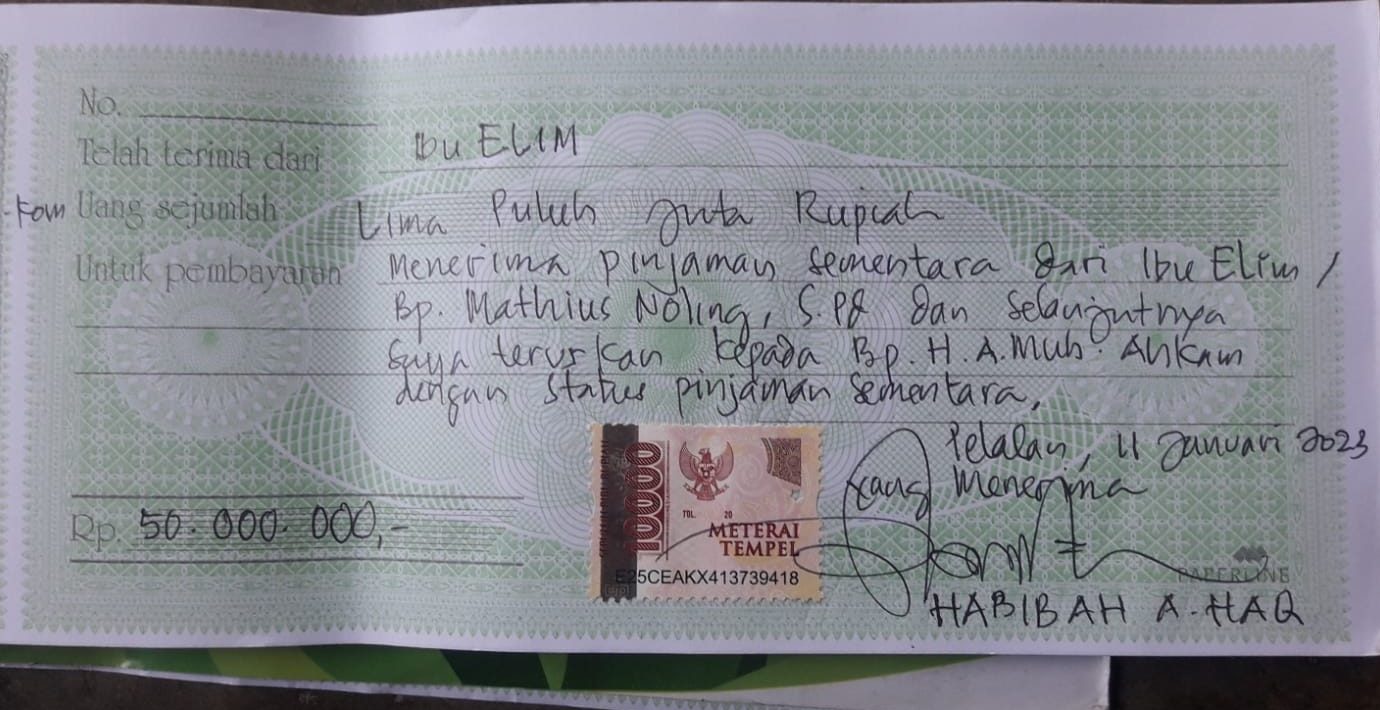 No.
Telah terima dari Ibu ELIM
Uang sejumlah Lima Puluh Juta Rupiah
Untuk pembayaran Menerima pinjaman sementara dari Ibu Elim /
Bp. Mathius Noling, S.Pd dan selanjutnya
saya teruskan kepada Bp. H. A. Muh. Ahkam
dengan status pinjaman sementara,
Pelalan, 11 Januari 2023
yang Menerima
Rp. 50.000.000,-
10000
TGL. 20
METERAI
TEMPEL
E25CEAKX413739418
PAPERLINE
HABIBAH A. HAQ